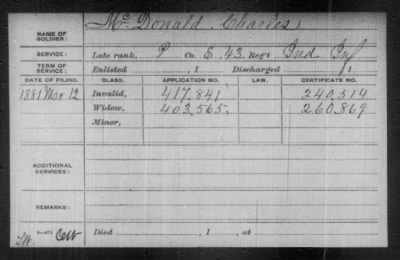 NAME OF SOLDIER: McDonald, Charles
SERVICE: Late rank, P Co. E, 43 Reg't Ind. Inf
TERM OF SERVICE: Enlisted , 1 Discharged , 1
DATE OF FILING. CLASS. APPLICATION NO. LAW. CERTIFICATE NO.
1881 Mar 12 Invalid, 417.841 240,514
Widow, 403,565. 260.869
Minor,
ADDITIONAL SERVICES:
REMARKS:
Died , 1 , at